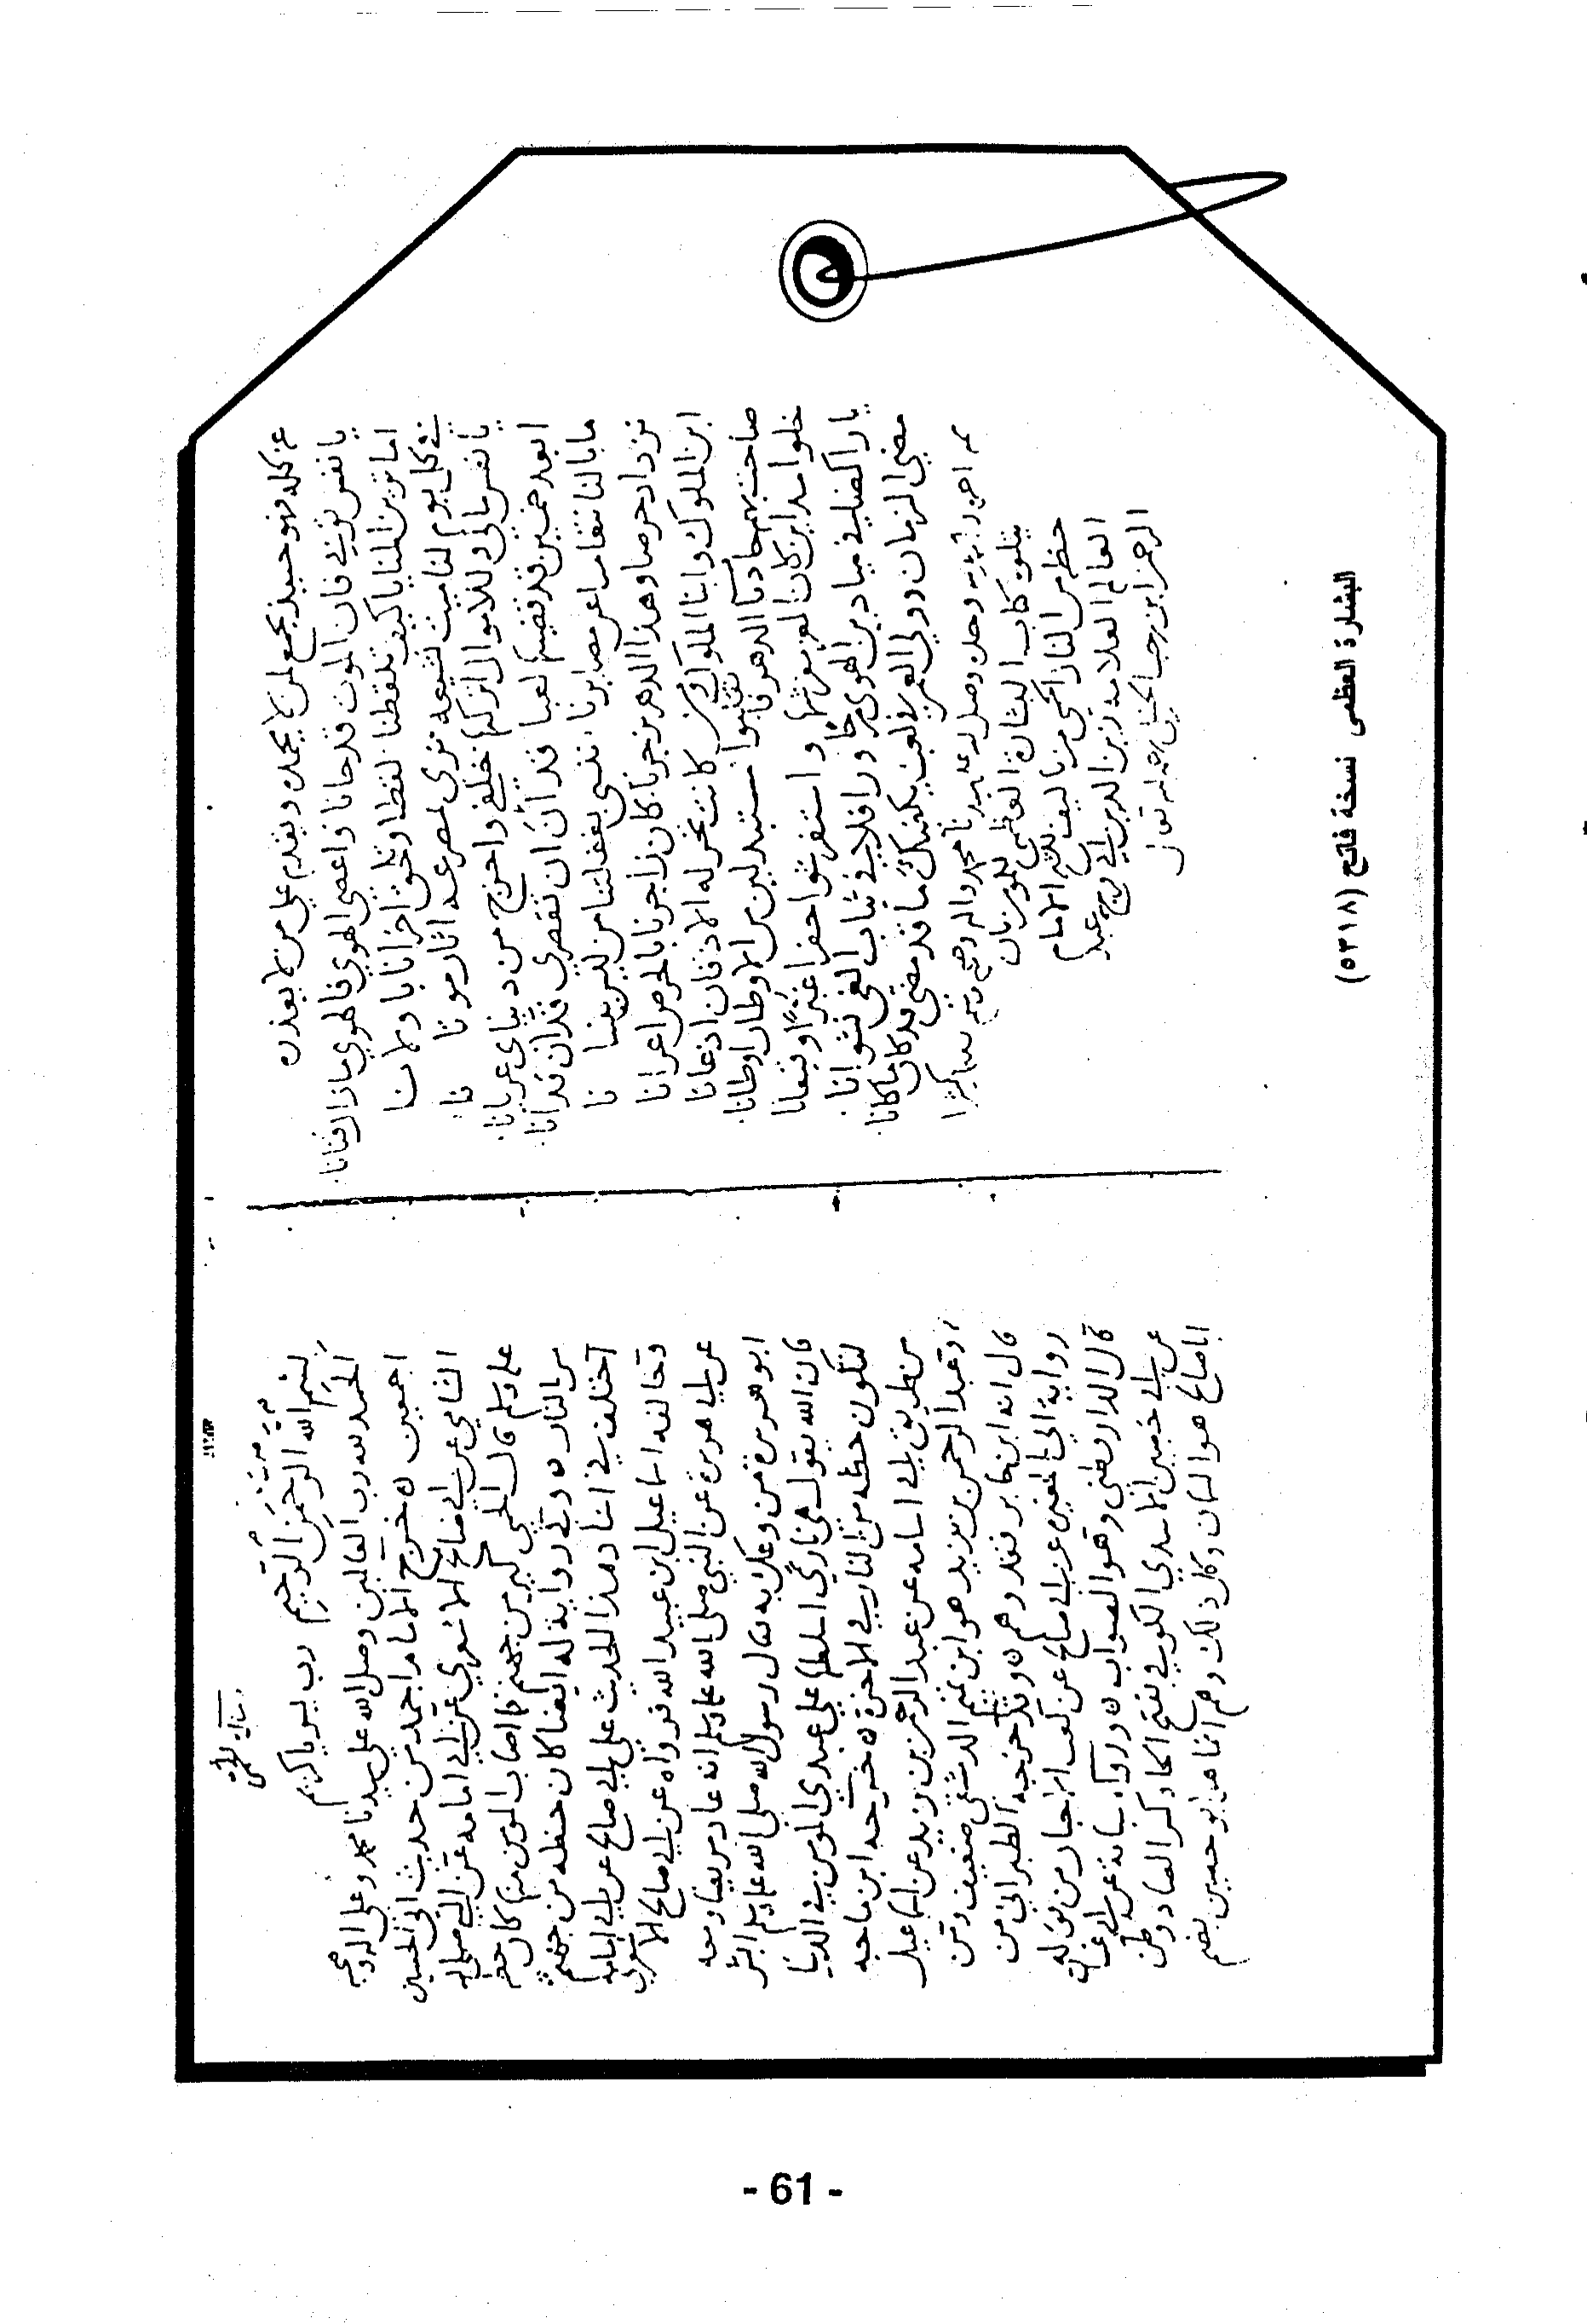 عن كله فهو حينئذ يجمع لمن لا يحمده ويقدم على من لا يعذره
يا نفس توبي فان الموت قد حانا واعصي الهوي فالهوي ما زال فتانا
اما ترين المنايا كيف تلقطنا لقطا وتلحق اخرانا باولانا
في كل يوم لنا ميت نشيعه نرى لمصرعه اثار موتانا
يا نفس مالي وللاموال اتركها خلفي واخرج من دنياي عريانا
ابعد خمسين قد قضيتها لعبا قد آن ان تقصري قد آن قد آنا
ما بالنا نتعامى عن مصايرنا ننسى بغفلتنا من ليس ينسانا
نزداد حرصا وهذا الدهر يزجرنا كان زاجرنا بالحرص اغرانا
اين الملوك وابنا الملوك ومن كانت تخر له الاذقان اذعانا
صاحت بهم حادثات الدهر فانقلبوا مستبدلين من الاوطان اوطانا
خلوا مداين كان العز مفرشها واستفرشوا حفرا غبرا وقيعانا
يا راكضا في ميادين الهوى مرحا ورافلا في ثياب الغي نشوانا
مضى الزمان وولى العمر في لعب يكفيك ما قد مضى قد كان ما كانا
وصلى الله على سيدنا محمد واله وصحبه وسلم تسليما كثيرا
يتلوه كتاب البشارة العظمى للمومن بان
حظه من النار الحمى من تاليف الشيخ الامام
العالم العلامه زين الدين ابي الفرج عبد
الرحمن ابن رجب الحنبلي رحمه الله تعالى
بسم الله الرحمن الرحيم رب يسر يا كريم
الحمد لله رب العالمين وصلى الله على سيدنا محمد وعلى اله وصحبه
اجمعين خرج الامام احمد من حديث ابي الحصين
الشامي عن ابي صالح الاشعري عن ابي امامه عن النبي صلى الله
عليه وسلم قال الحمى كير من جهنم فما اصاب المومن منها كان حظه
من النار وفي رواية له ايضا كان حظه من جهنم
اختلف في اسناد هذا الحديث على ابي صالح عن ابي امامه
وخالفه اسماعيل ابن عبيد الله فرواه عن ابي صالح الاشعري
عن ابي هريرة عن النبي صلى الله عليه وسلم انه عاد مريضا ومعه
ابو هريرة من وعك به فقال رسول الله صلى الله عليه وسلم ابشر
فان الله يقول هي ناري اسلطها على عبدي المومن في الدنيا
لتكون حظه من النار في الاخرة خرجه ابن ماجه
من طريق ابي اسامه عن عبد الرحمن بن يزيد عن اسماعيل
وعبد الرحمن بن يزيد هو ابن تميم الدمشقي ضعيف ومن
قال انه ابن جابر فقد وهم وقد خرجه الطبراني من
رواية ابي المغيرة عن ابي صالح عن كعب الاحبار من قوله
قال الدارقطني وهو الصواب ورواه شبابة عن ابي غسان
عن ابي حصين الاسدي الكوفي بفتح الحاء وكسر الصاد وظن
ابا صالح هو السمان وكل ذلك وهم انما هو ابو حصين بضم
البشارة العظمى نسخة فاتح (٥٣١٨)
- 61 -